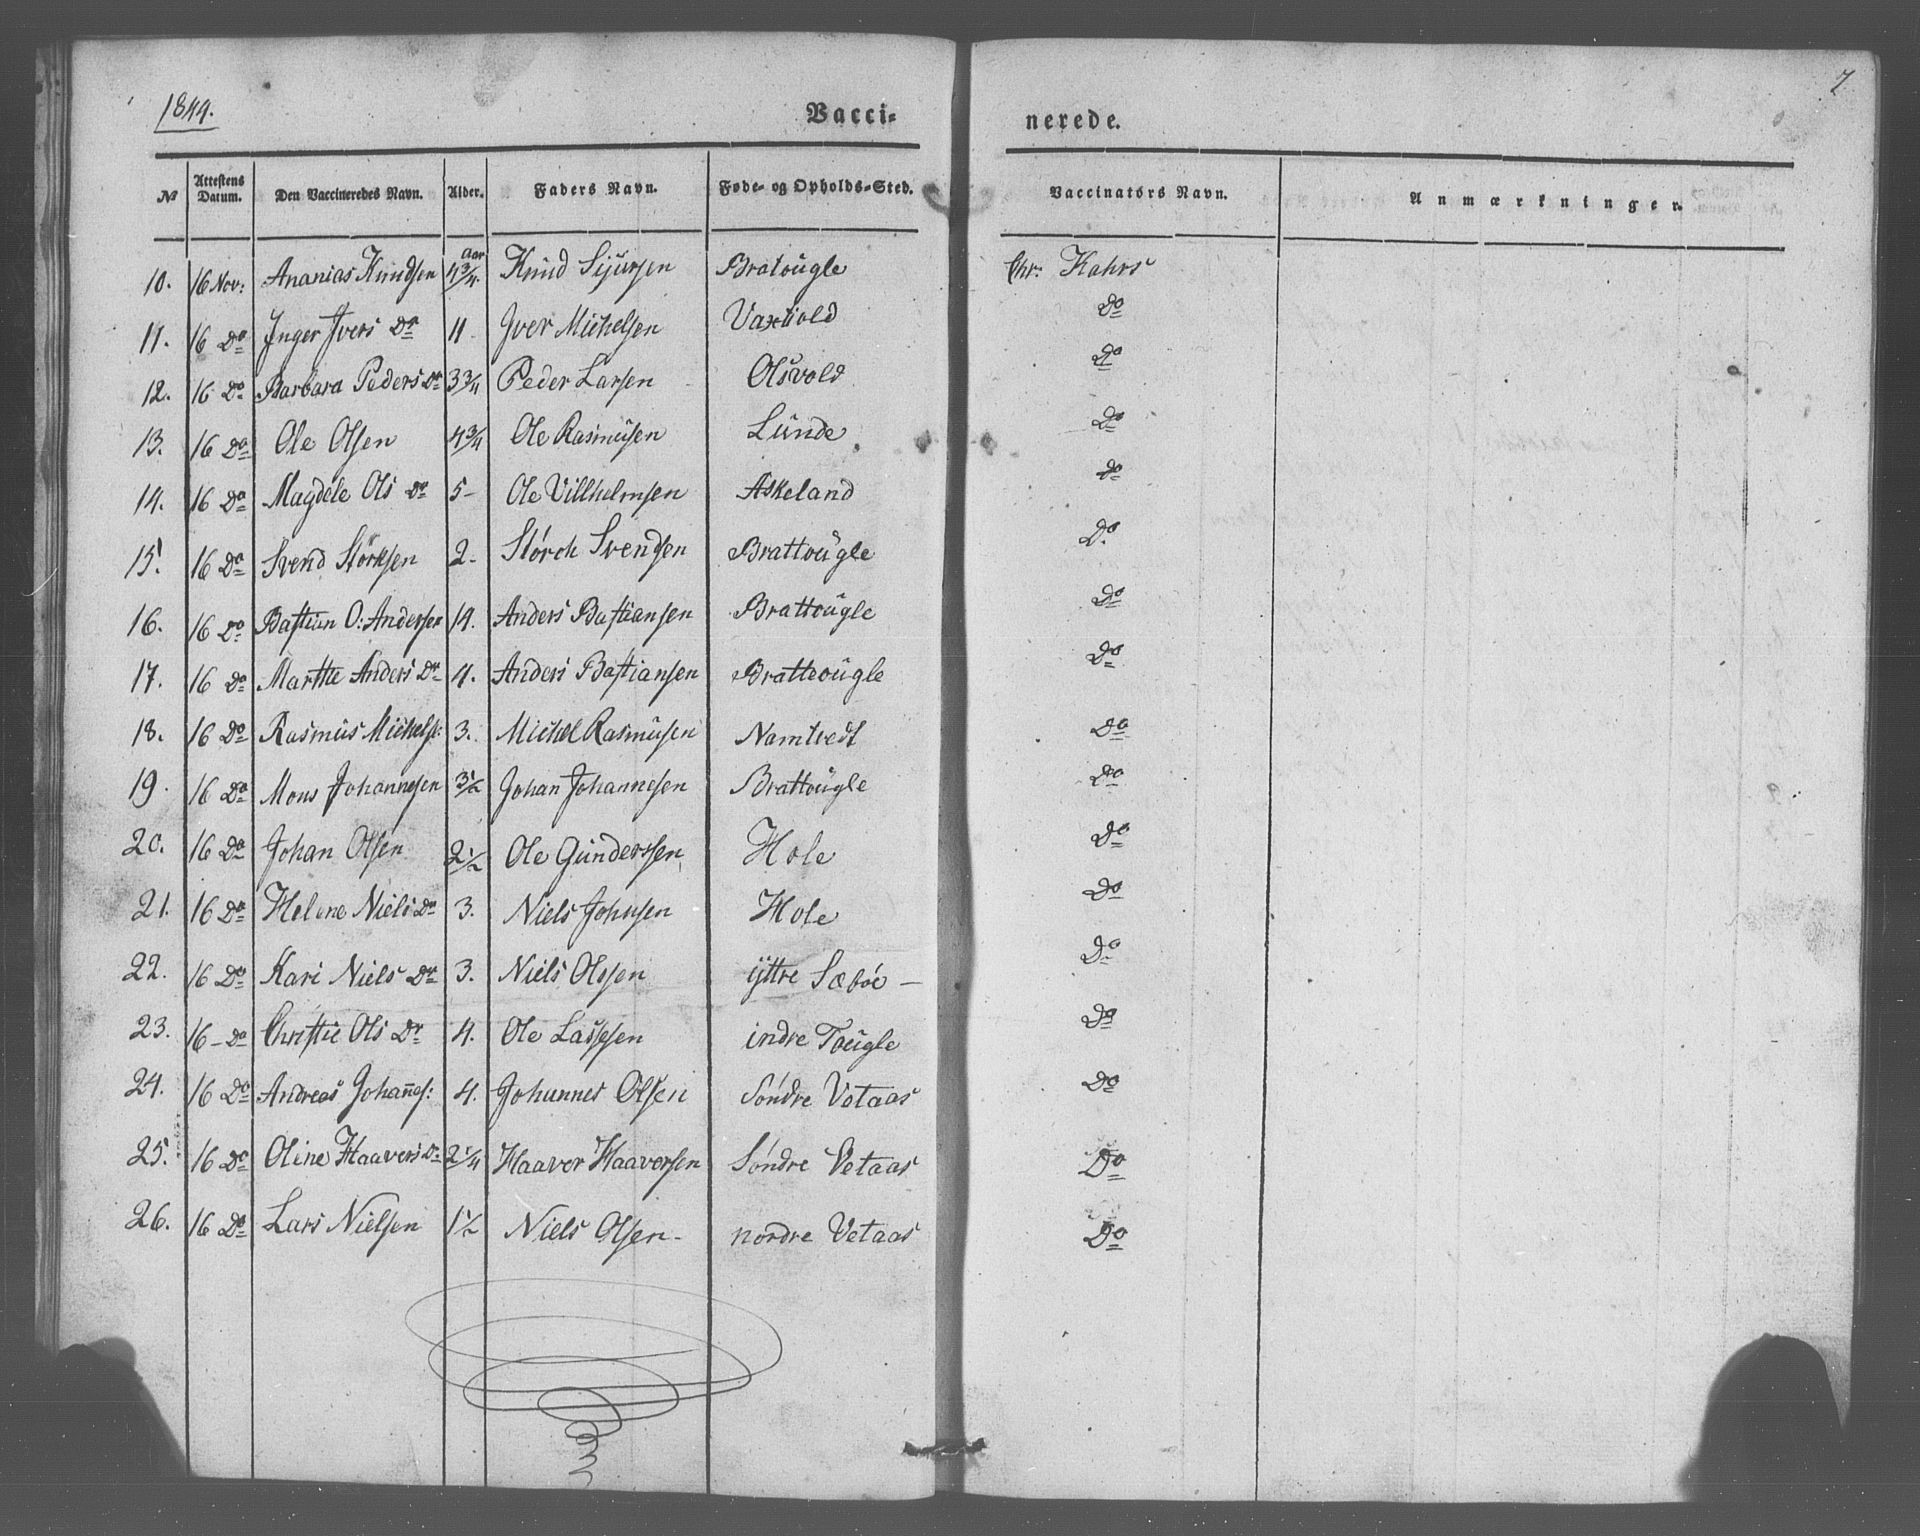 1844.
Vacci- nerede.
7
№ Attestens Datum. Den Vaccineredes Navn. Alder. Faders Navn. Føde- og Opholds-Sted. Vaccinators Navn. Anmærkninger.
10. 16 Nov: Ananias Knudsen 4¾ Aar Knud Sjursen Bratougle Chr: Kahrs
11. 16 Do Inger Ivers Dr 11 Iver Michelsen Vaxvold Do
12. 16 Do Barbara Peders Dr 3¾ Peder Larsen Olsvold Do
13. 16 Do Ole Olsen 4¾ Ole Rasmusen Lunde Do
14. 16 Do Magdele Ols Dr 5- Ole Villhelmsen Askeland do
15. 16 Do Svend Störksen 2. Störch Svendsen Brattougle Do
16. 16 Do Bastian O: Andersen 14. Anders Bastiansen Brattougle Do
17. 16 Do Marthe Anders Dr 4. Anders Bastiansen Bratteougle Do
18. 16 Do Rasmus Michels: 3. Michel Rasmusen Namtvedt Do
19. 16 Do Mons Johannesen 3½ Johan Johannesen Brattougle Do
20. 16 Do Johan Olsen 2½ Ole Gunderssen Hole Do
21. 16 Do Helene Niels Dr 3. Niels Johnsen Hole Do
22. 16 Do Kari Niels Dr 3. Niels Olssen ijttre Sæböe - Do
23. 16 - Do Christie Ols Dr 4. Ole Lassesen indre Tougle Do
24. 16 Do Andreas Johan̄es: 4. Johannes Olsen Söndre Vetaas Do
25. 16 Do Oline Haavers Dr 2¼ Haaver Haaversen Söndre Vetaas Do
26. 16 Do Lars Nielsen 1½ Niels Olsen - nordre Vetaas Do